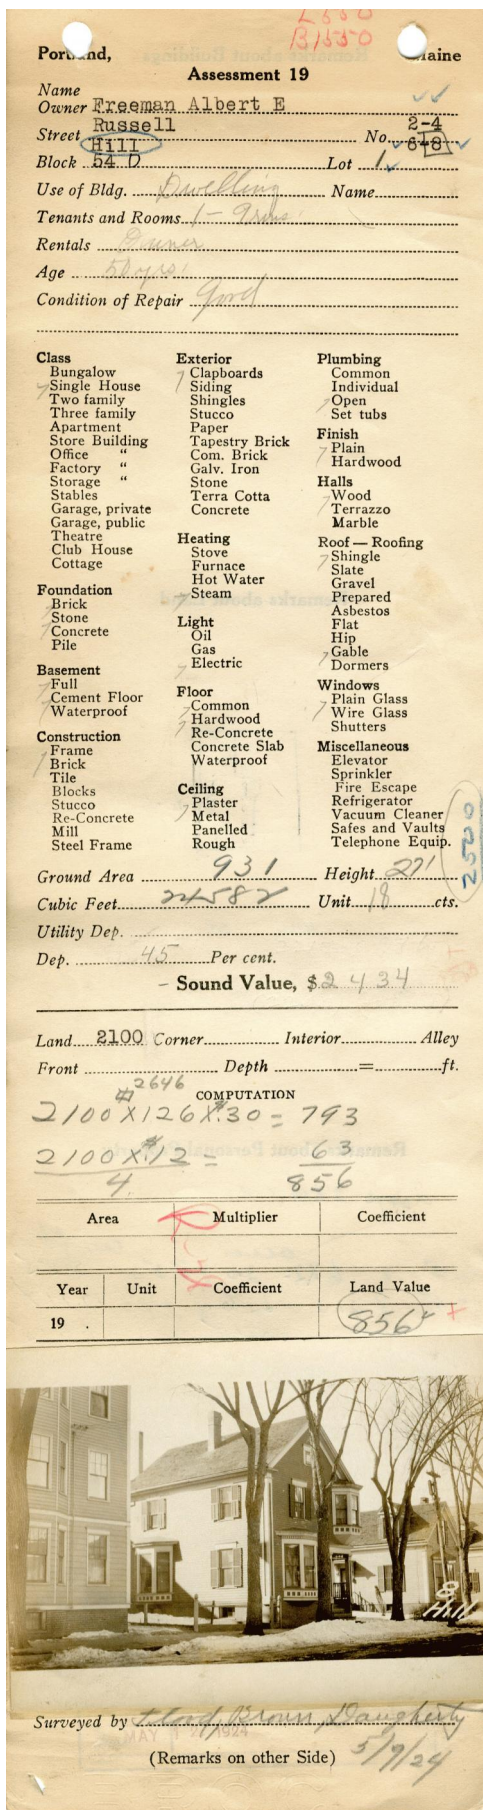 L550
B1550
Portland, Maine
Assessment 19
Name
Owner Freeman Albert E
Russell 2-4
Street Hill No. 6-8
Block 54 D Lot 1
Use of Bldg. Dwelling Name
Tenants and Rooms 1 - 9 rms
Rentals Owner
Age 50 yrs.
Condition of Repair Good
Class
Bungalow
Single House
Two family
Three family
Apartment
Store Building
Office "
Factory "
Storage "
Stables
Garage, private
Garage, public
Theatre
Club House
Cottage
Foundation
Brick
Stone
Concrete
Pile
Basement
Full
Cement Floor
Waterproof
Construction
Frame
Brick
Tile
Blocks
Stucco
Re-Concrete
Mill
Steel Frame
Exterior
Clapboards
Siding
Shingles
Stucco
Paper
Tapestry Brick
Com. Brick
Galv. Iron
Stone
Terra Cotta
Concrete
Heating
Stove
Furnace
Hot Water
Steam
Light
Oil
Gas
Electric
Floor
Common
Hardwood
Re-Concrete
Concrete Slab
Waterproof
Ceiling
Plaster
Metal
Panelled
Rough
Plumbing
Common
Individual
Open
Set tubs
Finish
Plain
Hardwood
Halls
Wood
Terrazzo
Marble
Roof — Roofing
Shingle
Slate
Gravel
Prepared
Asbestos
Flat
Hip
Gable
Dormers
Windows
Plain Glass
Wire Glass
Shutters
Miscellaneous
Elevator
Sprinkler
Fire Escape
Refrigerator
Vacuum Cleaner
Safes and Vaults
Telephone Equip.
2500
Ground Area 931 Height 27'
Cubic Feet 24582 Unit 18 cts.
Utility Dep.
Dep. 45 Per cent.
- Sound Value, $ 2434
Land 2100 Corner Interior Alley
Front Depth = ft.
2646
COMPUTATION
2100 X 126 X $.30 = 793
2100 X $.12 = 63
4 856
Area Multiplier Coefficient
Year Unit Coefficient Land Value
19 . 856
8
Hill
Surveyed by Brown, Daugherty
MAY 1924
(Remarks on other Side) 5/9/24